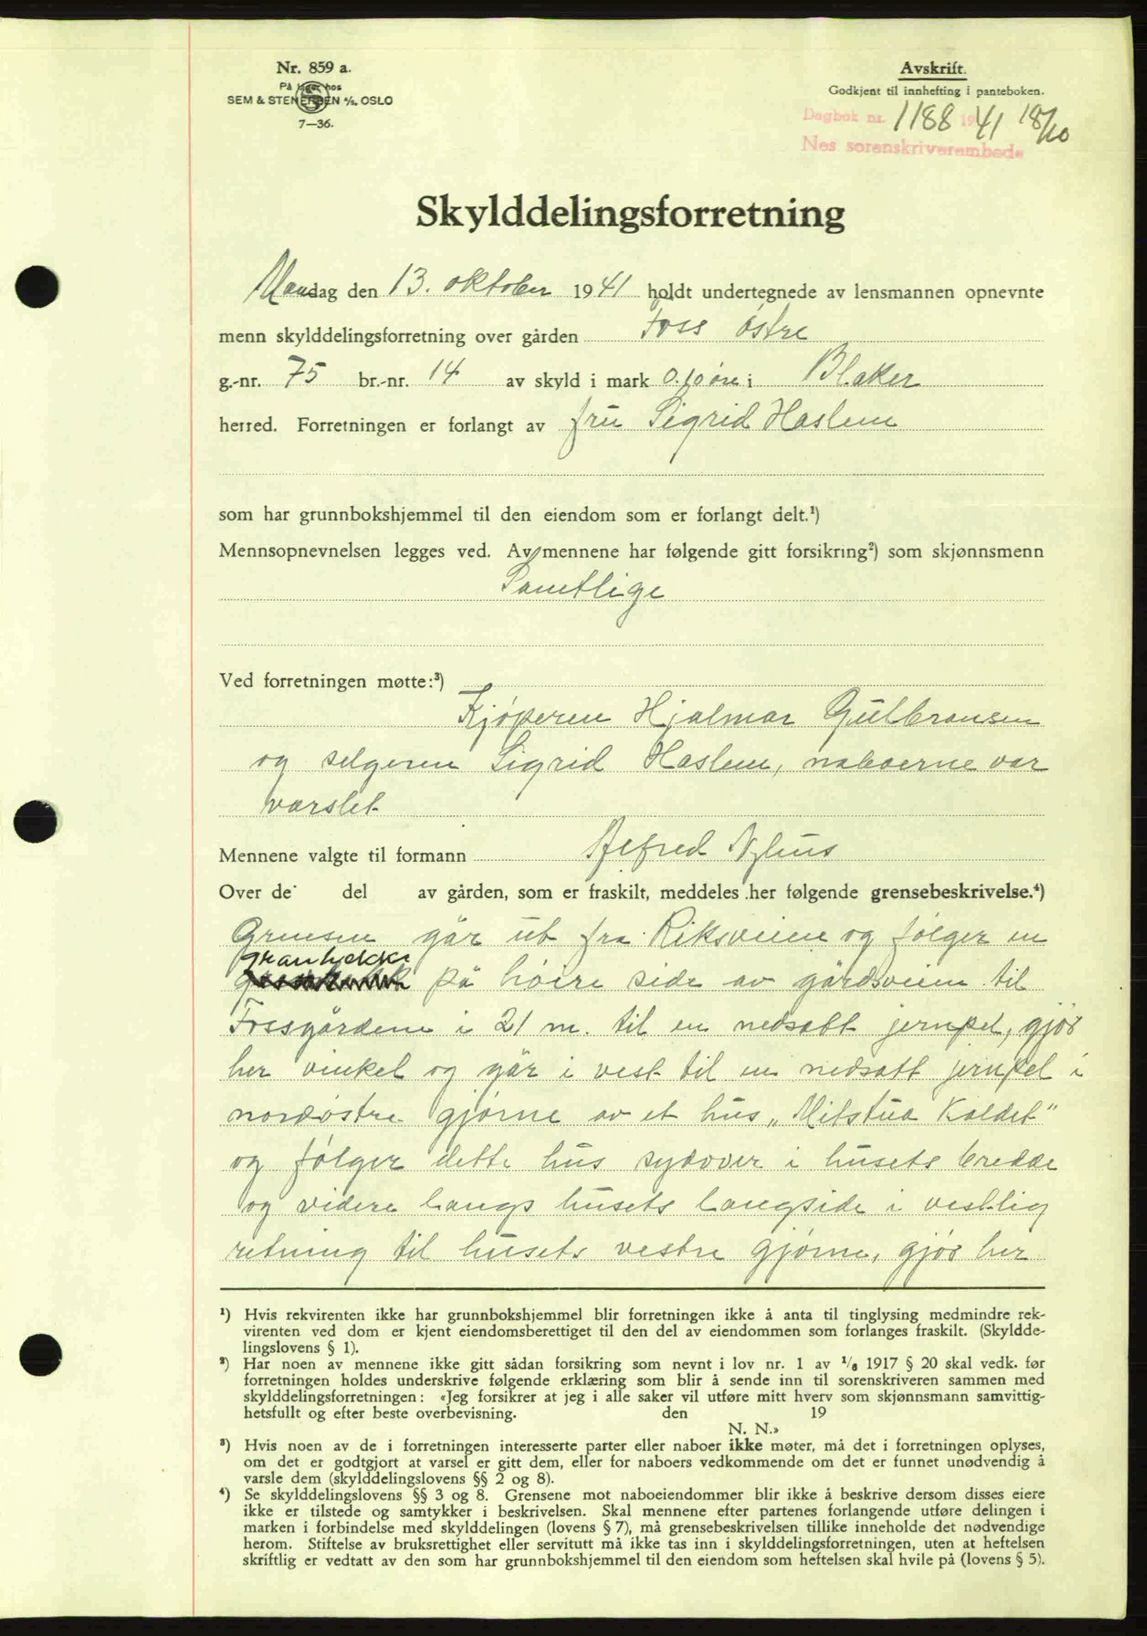 Nr. 859 a.
På lager hos
SEM & STENERSEN A/S. OSLO
7—36.
Avskrift.
Godkjent til innhefting i panteboken.
Dagbok nr. 1188 1941 18/10
Nes sorenskriverembede
Skylddelingsforretning
Mandag den 13. oktober 1941 holdt undertegnede av lensmannen opnevnte
menn skylddelingsforretning over gården Foss østre
g.-nr. 75 br.-nr. 14 av skyld i mark 0.10 øre i Blaker
herred. Forretningen er forlangt av fru Sigrid Haslem
som har grunnbokshjemmel til den eiendom som er forlangt delt.¹)
Mennsopnevnelsen legges ved. Av mennene har følgende gitt forsikring²) som skjønnsmenn
Samtlige
Ved forretningen møtte:³)
Kjøperen Hjalmar Gulbransen
og selgeren Sigrid Haslem, naboerne var
varslet
Mennene valgte til formann Alfred Nyhus
Over de del av gården, som er fraskilt, meddeles her følgende grensebeskrivelse.⁴)
Grensen går ut fra Riksveien og følger en
granhekk
på høire side av gårdsveien til
Fossgårdene i 21 m. til en nedsatt jernpel, gjør
her vinkel og går i vest til en nedsatt jernpel i
nordøstre hjørne av et hus „Mitstua Kaldet"
og følger dette hus sydover i husets bredde
og videre langs husets langside i vestlig
retning til husets vestre hjørne, gjør her
¹) Hvis rekvirenten ikke har grunnbokshjemmel blir forretningen ikke å anta til tinglysing medmindre rek-
virenten ved dom er kjent eiendomsberettiget til den del av eiendommen som forlanges fraskilt. (Skyldde-
lingslovens § 1).
²) Har noen av mennene ikke gitt sådan forsikring som nevnt i lov nr. 1 av 1/6 1917 § 20 skal vedk. før
forretningen holdes underskrive følgende erklæring som blir å sende inn til sorenskriveren sammen med
skylddelingsforretningen: «Jeg forsikrer at jeg i alle saker vil utføre mitt hverv som skjønnsmann samvittig-
hetsfullt og efter beste overbevisning. den 19
N. N.»
³) Hvis noen av de i forretningen interesserte parter eller naboer ikke møter, må det i forretningen oplyses,
om det er godtgjort at varsel er gitt dem, eller for naboers vedkommende om det er funnet unødvendig å
varsle dem (skylddelingslovens §§ 2 og 8).
⁴) Se skylddelingslovens §§ 3 og 8. Grensene mot naboeiendommer blir ikke å beskrive dersom disses eiere
ikke er tilstede og samtykker i beskrivelsen. Skal mennene efter partenes forlangende utføre delingen i
marken i forbindelse med skylddelingen (lovens § 7), må grensebeskrivelsen tillike inneholde det nødvendige
herom. Stiftelse av bruksrettighet eller servitutt må ikke tas inn i skylddelingsforretningen, uten at heftelsen
skriftlig er vedtatt av den som har grunnbokshjemmel til den eiendom som heftelsen skal hvile på (lovens § 5).